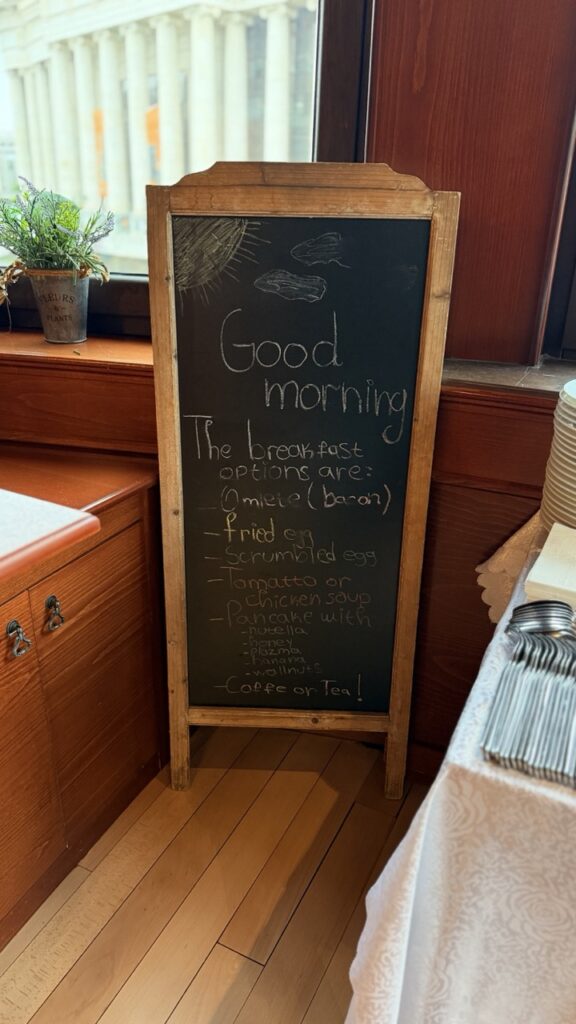 FLEURS
&
PLANTS
Good
morning
The breakfast
options are:
- Omlete (bacon)
- fried egg
- Scrumbled egg
- Tomatto or
chicken soup
- Pancake with
- nutella
- honey
- plazma
- banana
- wallnuts
- Coffe or Tea!